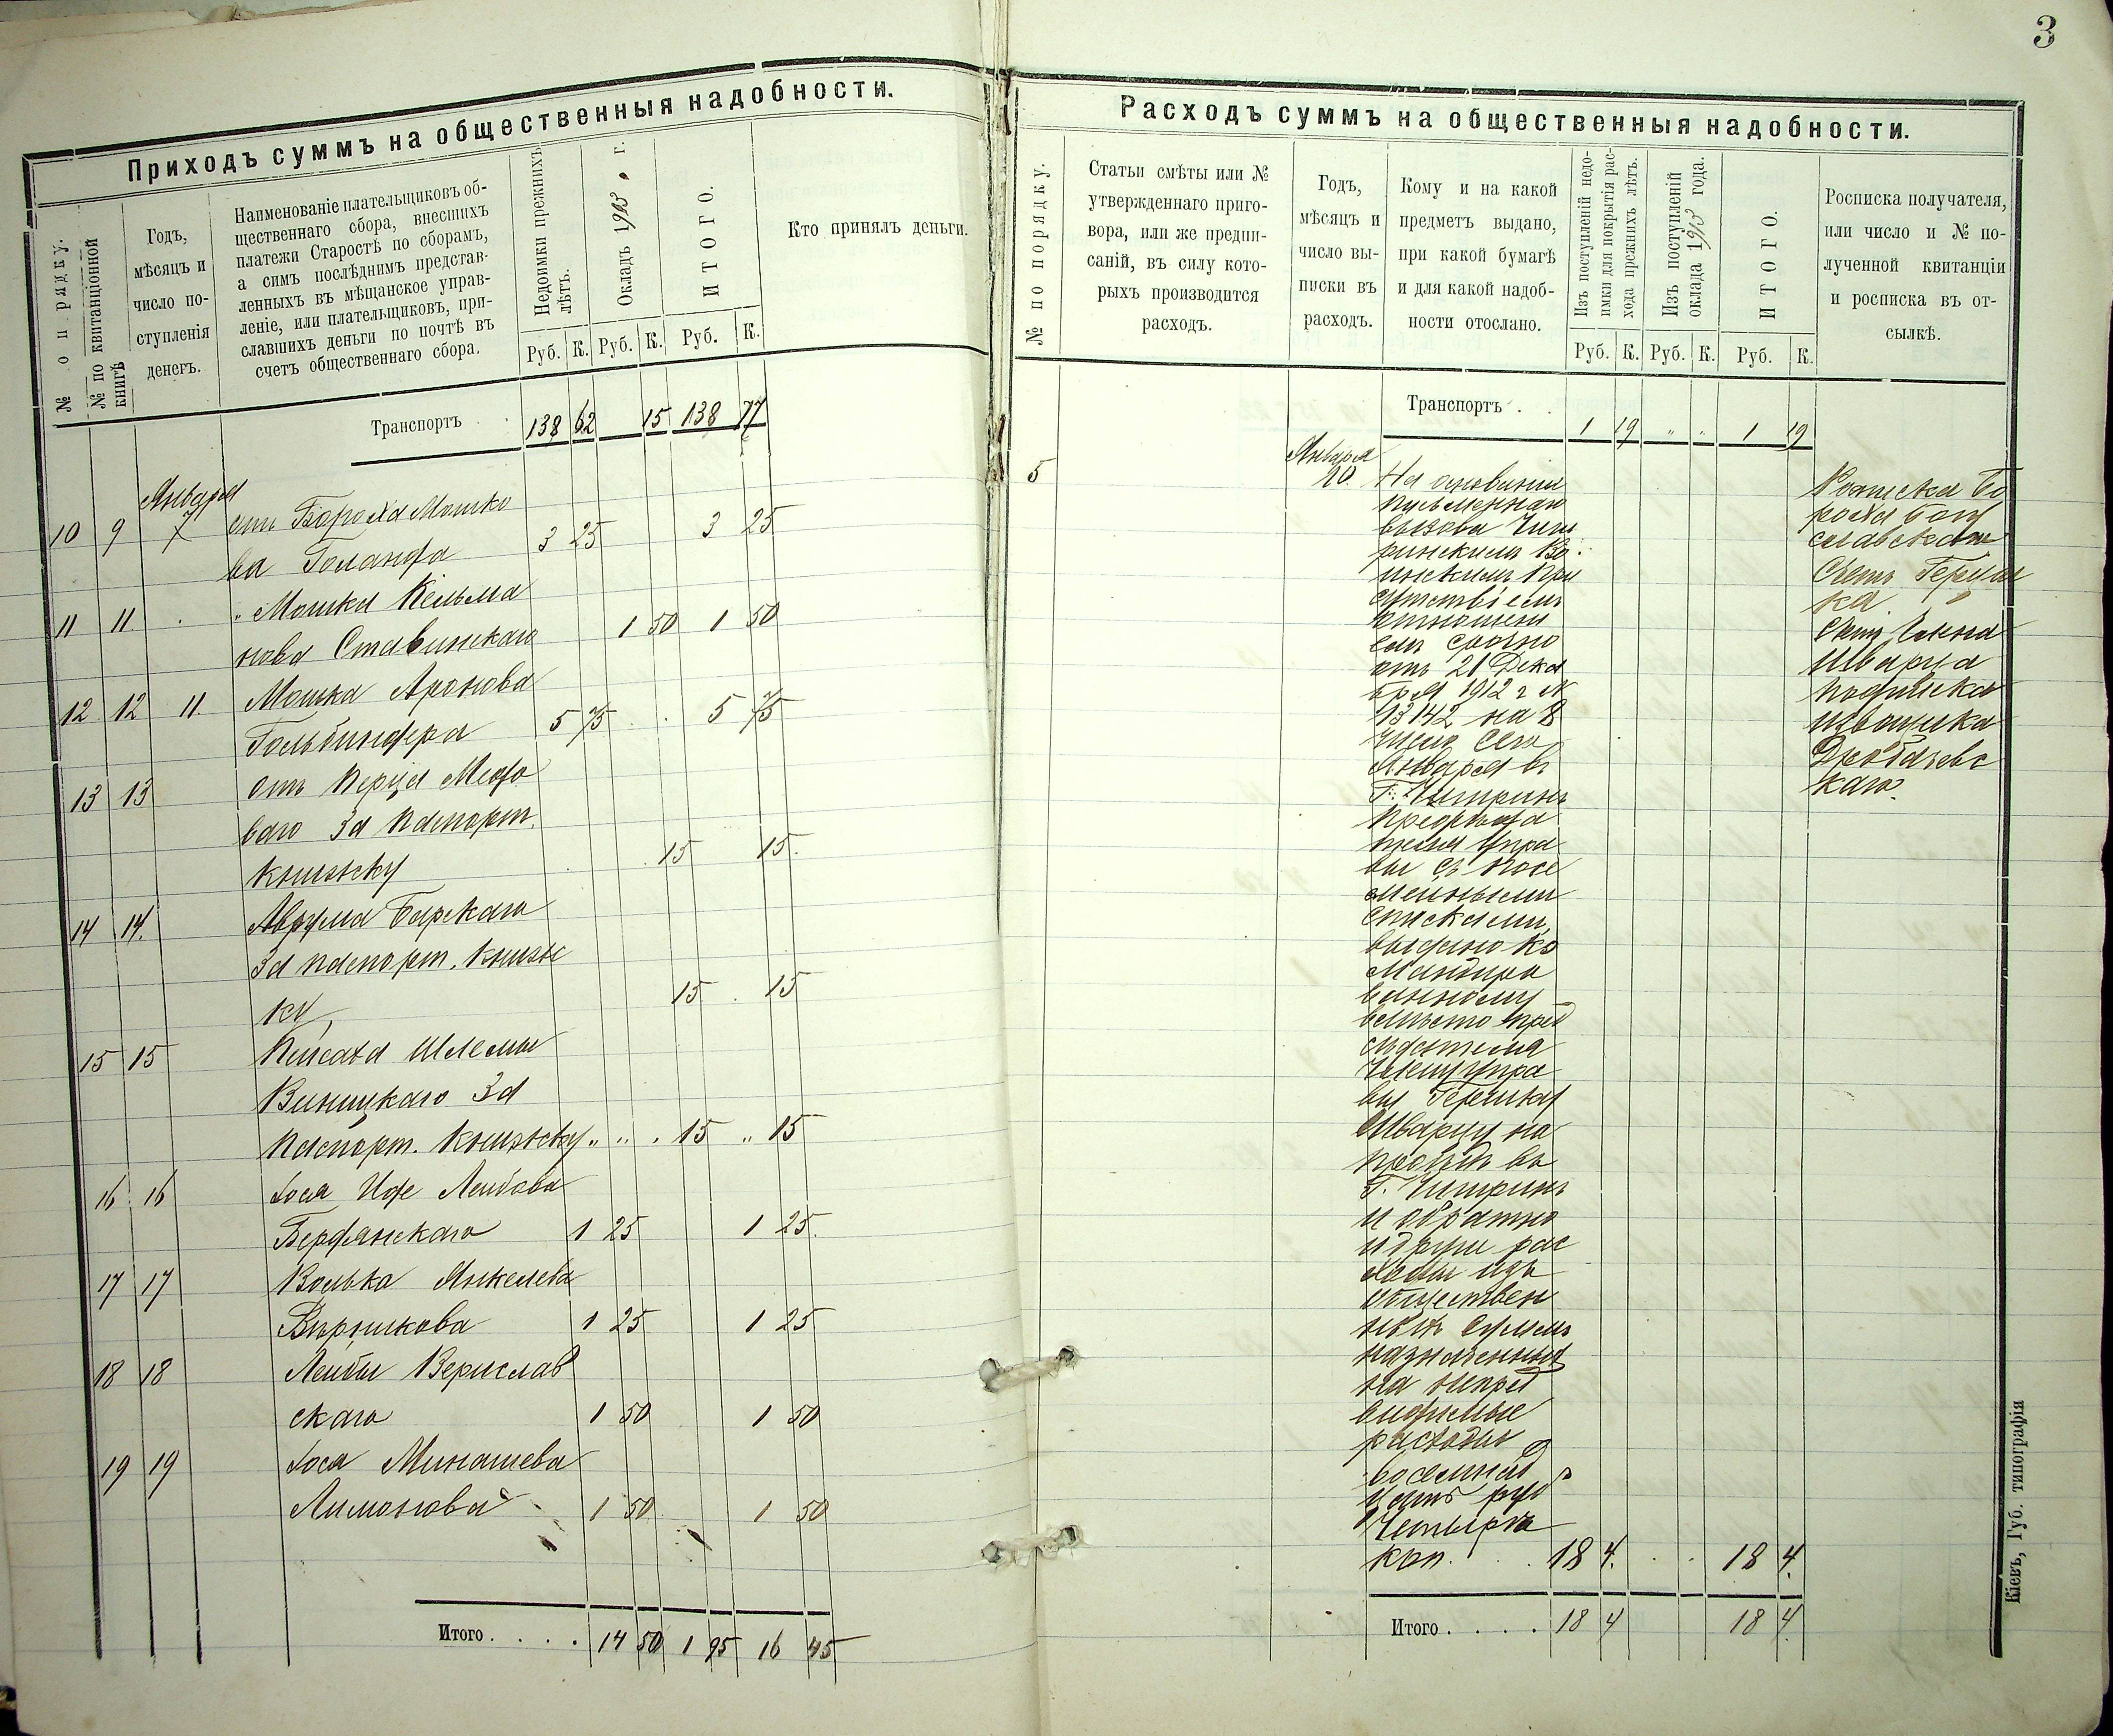 3
Приходъ суммъ на общественныя надобности.
№ по порядку.
№ по квитанціонной книгѣ
Годъ,
мѣсяцъ и
число по-
ступленія
денегъ.
Наименованіе плательщиковъ об-
щественнаго сбора, внесшихъ
платежи Старостѣ по сборамъ,
а симъ послѣднимъ представ-
ленныхъ въ мѣщанское управ-
леніе, или плательщиковъ, при-
славшихъ деньги по почтѣ въ
счетъ общественнаго сбора.
Недоимки прежнихъ лѣтъ.
Окладъ 1913 г.
ИТОГО.
Кто принялъ деньги.
Руб. К. Руб. К. Руб. К.
Транспортъ 138 62 15 138 77
Января
10 9 7 отъ Бороха Мошко
ва Голанда 3 25 3 25
11 11 . " Мошка Кельма
нова Ставинскаго 1 50 1 50
12 12 11. Мошка Аронова
Гольбиндера 5 75 . . 5 75
13 13 отъ Перца Медо
ваго За паспорт.
книжку . . 15 15.
14 14. Аврума Барскаго
За паспорт. книж
ку 15 . 15
15 15 Пейсаха Шлемы
Виницкаго За
паспорт. книжку " " . 15 " 15
16 16 Іося Иде Лейбова
Бердянскаго 1 25 1 25.
17 17 Волька Янкелева
Вѣрникова 1 25 1 25
18 18 Лейбы Верислав
скаго 1 50 1 50
19 19 Іося Минашева
Лимонова 1 50 1 50
Итого . . . . 14 50 1 95 16 45
Расходъ суммъ на общественныя надобности.
№ по порядку.
Статьи смѣты или №
утвержденнаго приго-
вора, или же предпи-
саній, въ силу кото-
рыхъ производится
расходъ.
Годъ,
мѣсяцъ и
число вы-
писки въ
расходъ.
Кому и на какой
предметъ выдано,
при какой бумагѣ
и для какой надоб-
ности отослано.
Изъ поступленій недо-
имки для покрытія рас-
хода прежнихъ лѣтъ.
Изъ поступленій
оклада 1913 года.
ИТОГО.
Росписка получателя,
или число и № по-
лученной квитанціи
и росписка въ от-
сылкѣ.
Руб. К. Руб. К. Руб. К.
Транспортъ . . 1 19 " " 1 19
Января
5 20. На основаніи
вызова Чиги
ринскимъ Во
инскимъ При
сутствіемъ
отношені
емъ срочно
отъ 21 Дека
бря 1912 г №
13142 на 8
число сего
Января въ
Г. Чигиринъ
предсѣда
теля Упра
вы съ посе
мейными
списками,
выдано ко
мандиро
ванному
вмѣсто пред
сѣдателя
Член Упра
вы Гершку
Шварцу на
проѣздъ въ
Г. Чигиринъ
и обратно
и други рас
ходы изъ
обществен
ныхъ суммъ
назначенныхъ
на непред
видимые
расходы
восемнад
цать руб
Четыре
коп. . . . 18 4. . . 18 4.
Итого . . . . 18 4 18 4.
Росписка Бо
роха Богу
славскаго
Счетъ Герш
ка
Члена
Шварца
подписка
извощика
каго.
Кіевъ, Губ. типографія